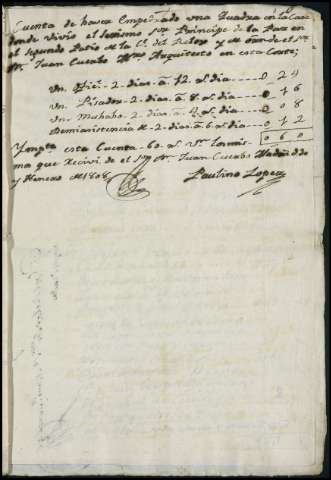 Cuenta de haver Empedrado una Quadra en la Casa
donde Vivió el Serenismo Sor Principe de la Paz en
el Segundo Patio de la Ce. del Relox y de orn de el Sr
Dn. Juan Cuerbo Mro Arquitecto en esta Corte;
Un Ofil - 2 - dias - à - 12. al dia - 0 2 4
Un Pisador - 2 - dias à 8 al dia - 0 1 6
Un Muchabo - 2 - dias - à 4 al dia - 0 0 8
Demianistencia de - 2 - dias - à 6 al dia - 0 1 2
Ymporta esta Cuenta - 60 - rs Vn 0 6 0
ma que Recivi de el Sor Dn. Juan Cuerbo Madrid 2
y Henero de 1808
Paulino Lopez